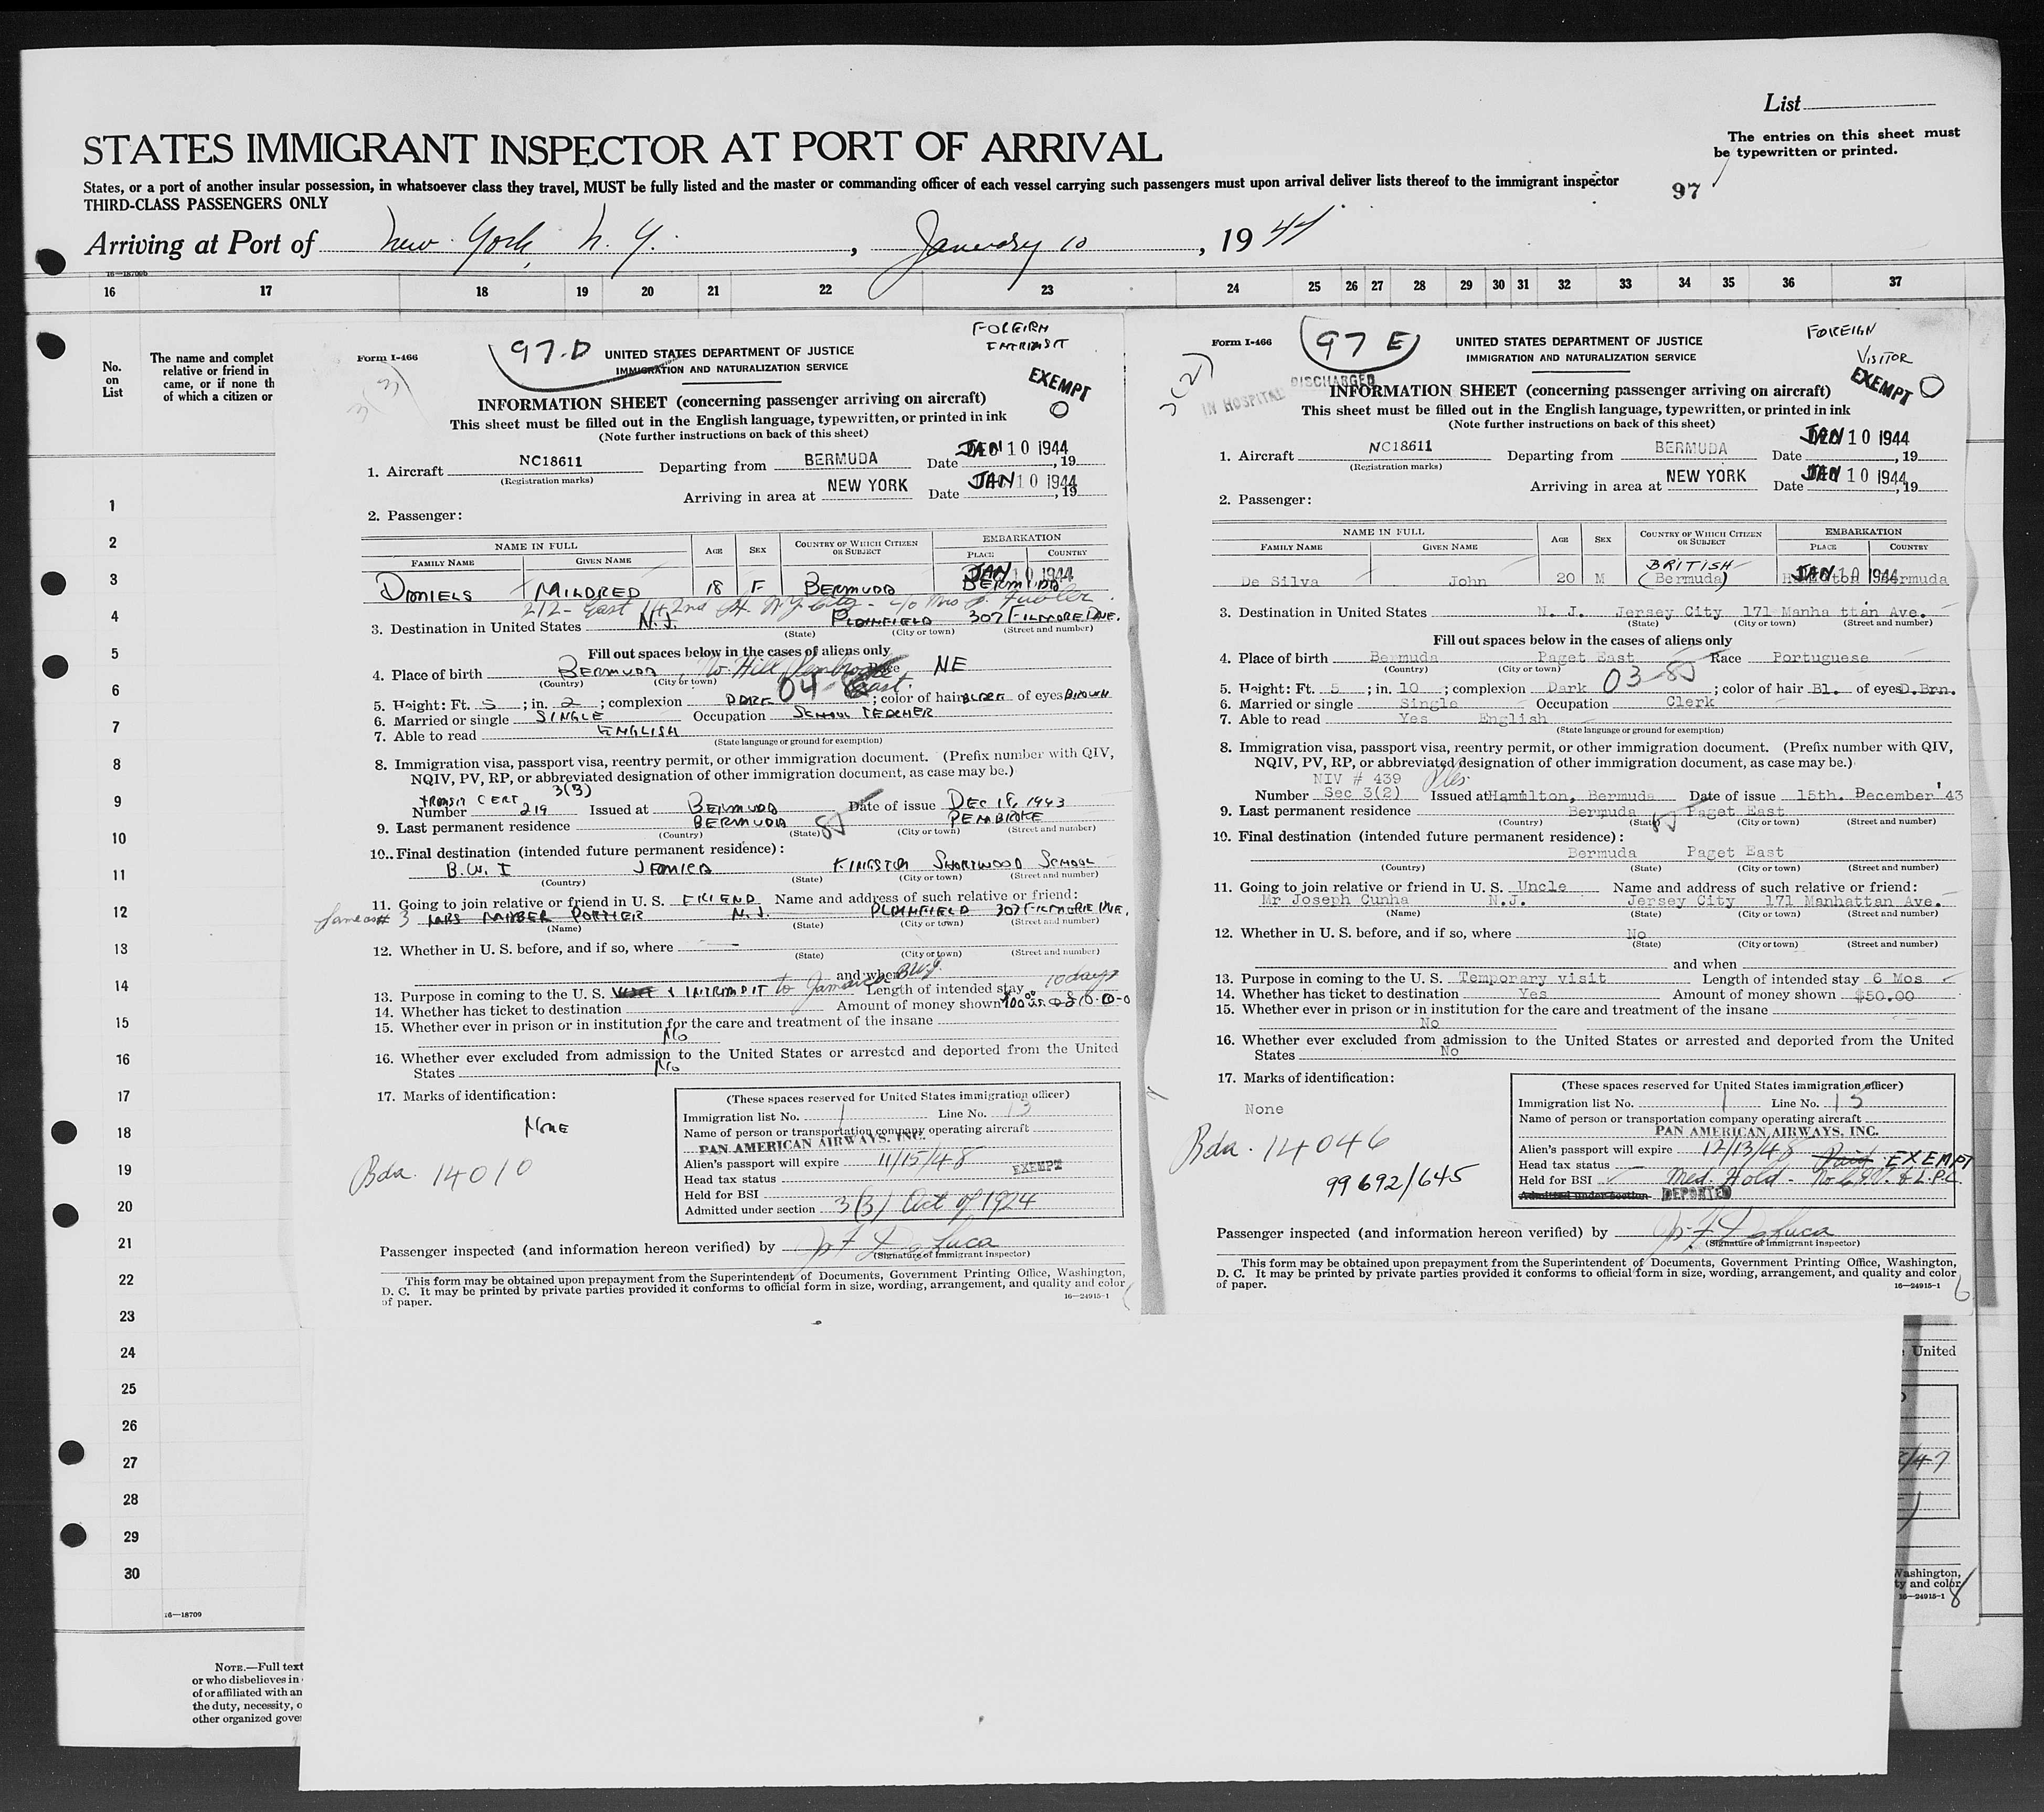 List
The entries on this sheet must
be typewritten or printed.
STATES IMMIGRANT INSPECTOR AT PORT OF ARRIVAL
States, or a port of another insular possession, in whatsoever class they travel, MUST be fully listed and the master or commanding officer of each vessel carrying such passengers must upon arrival deliver lists thereof to the immigrant inspector
THIRD-CLASS PASSENGERS ONLY
97
Arriving at Port of New York, N. Y. , January 10 , 1944
16—18709b
16 17 18 19 20 21 22 23 24 25 26 27 28 29 30 31 32 33 34 35 36 37
No.
on
List
The name and complet
relative or friend in
came, or if none th
of which a citizen or
1
2
3
4
5
6
7
8
9
10
11
12
13
14
15
16
17
18
19
20
21
22
23
24
25
26
27
28
29
30
16—18709
NOTE.—Full text
or who disbelieves in
of or affiliated with an
the duty, necessity, o
other organized gove
Form I-466
97-D
3(3)
UNITED STATES DEPARTMENT OF JUSTICE
IMMIGRATION AND NATURALIZATION SERVICE
FOREIGN
INTRANSIT
EXEMPT
INFORMATION SHEET (concerning passenger arriving on aircraft)
This sheet must be filled out in the English language, typewritten, or printed in ink
(Note further instructions on back of this sheet)
1. Aircraft NC18611 Departing from BERMUDA Date JAN 10 1944, 19
(Registration marks)
Arriving in area at NEW YORK Date JAN 10 1944, 19
2. Passenger:
NAME IN FULL AGE SEX COUNTRY OF WHICH CITIZEN OR SUBJECT EMBARKATION
FAMILY NAME GIVEN NAME PLACE COUNTRY
JAN 10 1944
DANIELS MILDRED 18 F BERMUDA BERMUDA
212- East 142nd St. N.Y. City - c/o Mrs
3. Destination in United States N.J. PLAINFIELD 307 FILMORE AVE.
(State) (City or town) (Street and number)
Fill out spaces below in the cases of aliens only
4. Place of birth BERMUDA, No. Hill Pembroke East Race NE
(Country) (City or town)
04
5. Height: Ft. 5; in. 2; complexion DARK; color of hair BLACK of eyes BROWN
6. Married or single SINGLE Occupation SCHOOL TEACHER
7. Able to read ENGLISH
(State language or ground for exemption)
8. Immigration visa, passport visa, reentry permit, or other immigration document. (Prefix number with QIV,
NQIV, PV, RP, or abbreviated designation of other immigration document, as case may be.)
TRANSIT CERT 3(3)
Number 219 Issued at BERMUDA Date of issue DEC 18, 1943
9. Last permanent residence BERMUDA PEMBROKE
(Country) (State) (City or town) (Street and number)
10. Final destination (intended future permanent residence):
B.W.I JAMAICA KINGSTON SHORTWOOD SCHOOL
(Country) (State) (City or town) (Street and number)
11. Going to join relative or friend in U. S. FRIEND Name and address of such relative or friend:
Same as # 3 MRS PORTIER N.J. PLAINFIELD 307 FILMORE AVE.
(Name) (State) (City or town) (Street and number)
12. Whether in U. S. before, and if so, where
(State) (City or town) (Street and number)
and when
13. Purpose in coming to the U. S. INTRANSIT to Jamaica BWI. Length of intended stay 10 days
14. Whether has ticket to destination Amount of money shown
15. Whether ever in prison or in institution for the care and treatment of the insane
No
16. Whether ever excluded from admission to the United States or arrested and deported from the United
States No
17. Marks of identification:
NONE
Bda. 14010
(These spaces reserved for United States immigration officer)
Immigration list No. 1 Line No. 13
Name of person or transportation company operating aircraft
PAN AMERICAN AIRWAYS, INC.
Alien's passport will expire 11/15/48
Head tax status EXEMPT
Held for BSI
Admitted under section 3(3) Act of 1924
Passenger inspected (and information hereon verified) by
(Signature of immigrant inspector)
This form may be obtained upon prepayment from the Superintendent of Documents, Government Printing Office, Washington,
D. C. It may be printed by private parties provided it conforms to official form in size, wording, arrangement, and quality and color
of paper.
16—24915-1
Form I-466
97 E
3(2)
UNITED STATES DEPARTMENT OF JUSTICE
IMMIGRATION AND NATURALIZATION SERVICE
FOREIGN
VISITOR
EXEMPT
IN HOSPITAL DISCHARGED
INFORMATION SHEET (concerning passenger arriving on aircraft)
This sheet must be filled out in the English language, typewritten, or printed in ink
(Note further instructions on back of this sheet)
1. Aircraft NC18611 Departing from BERMUDA Date JAN 10 1944, 19
(Registration marks)
Arriving in area at NEW YORK Date JAN 10 1944, 19
2. Passenger:
NAME IN FULL AGE SEX COUNTRY OF WHICH CITIZEN OR SUBJECT EMBARKATION
FAMILY NAME GIVEN NAME PLACE COUNTRY
BRITISH JAN 10 1944
De Silva John 20 M (Bermuda) Hamilton Bermuda
3. Destination in United States N. J. Jersey City 171 Manhattan Ave.
(State) (City or town) (Street and number)
Fill out spaces below in the cases of aliens only
4. Place of birth Bermuda Paget East Race Portuguese
(Country) (City or town)
03
5. Height: Ft. 5; in. 10; complexion Dark; color of hair Bl. of eyes D.Brn.
6. Married or single Single Occupation Clerk
7. Able to read Yes English
(State language or ground for exemption)
8. Immigration visa, passport visa, reentry permit, or other immigration document. (Prefix number with QIV,
NQIV, PV, RP, or abbreviated designation of other immigration document, as case may be.)
NIV # 439
Number Sec 3(2) Issued at Hamilton, Bermuda Date of issue 15th. December '43
9. Last permanent residence Bermuda Paget East
(Country) (State) (City or town) (Street and number)
10. Final destination (intended future permanent residence):
Bermuda Paget East
(Country) (State) (City or town) (Street and number)
11. Going to join relative or friend in U. S. Uncle Name and address of such relative or friend:
Mr Joseph Cunha N.J. Jersey City 171 Manhattan Ave.
(Name) (State) (City or town) (Street and number)
12. Whether in U. S. before, and if so, where No
(State) (City or town) (Street and number)
and when
13. Purpose in coming to the U. S. Temporary visit Length of intended stay 6 Mos
14. Whether has ticket to destination Yes Amount of money shown $50.00
15. Whether ever in prison or in institution for the care and treatment of the insane
No
16. Whether ever excluded from admission to the United States or arrested and deported from the United
States No
17. Marks of identification:
None
Bda. 14046
99692/645
(These spaces reserved for United States immigration officer)
Immigration list No. 1 Line No. 15
Name of person or transportation company operating aircraft
PAN AMERICAN AIRWAYS, INC.
Alien's passport will expire 12/13/48
Head tax status Paid EXEMPT
Held for BSI Med. Hold - & L.P.C.
Admitted under section DEPORTED
Passenger inspected (and information hereon verified) by
(Signature of immigrant inspector)
This form may be obtained upon prepayment from the Superintendent of Documents, Government Printing Office, Washington,
D. C. It may be printed by private parties provided it conforms to official form in size, wording, arrangement, and quality and color
of paper.
16—24915-1
6
United
/47
Washington,
ty and color
16—24915-1
8